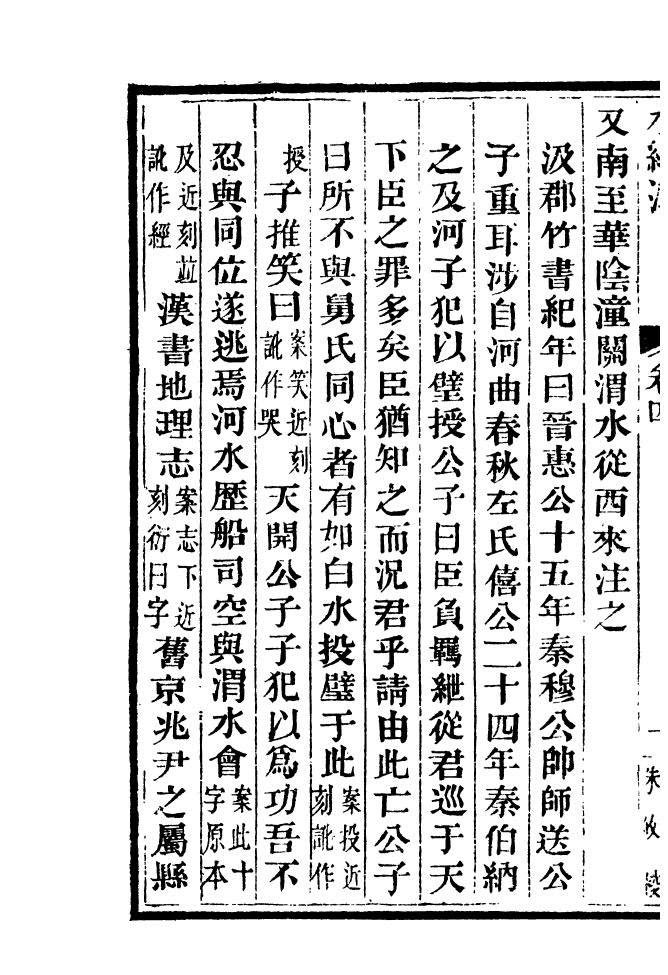 水經注
卷四
又南至華陰潼關渭水從西來注之
汲郡竹書紀年曰晉惠公十五年秦穆公帥師送公
子重耳涉自河曲春秋左氏僖公二十四年秦伯納
之及河子犯以璧授公子曰臣負羈絏從君巡于天
下臣之罪多矣臣猶知之而況君乎請由此亡公子
曰所不與舅氏同心者有如白水投璧于此案投近刻訛作
授子推笑曰案笑近刻訛作哭天開公子子犯以爲功吾不
忍與同位遂逃焉河水歷船司空與渭水會案此十字原本
及近刻並訛作經漢書地理志案志下近刻衍曰字舊京兆尹之屬縣